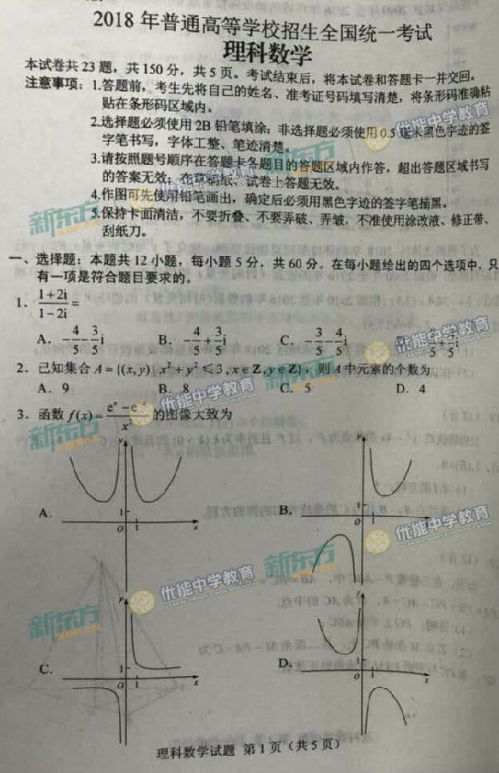 2018 年普通高等学校招生全国统一考试
理科数学
本试卷共 23 题，共 150 分，共 5 页。考试结束后，将本试卷和答题卡一并交回。
注意事项：1.答题前，考生先将自己的姓名、准考证号码填写清楚，将条形码准确粘
贴在条形码区域内。
2.选择题必须使用 2B 铅笔填涂；非选择题必须使用 0.5 毫米黑色字迹的签
字笔书写，字体工整、笔迹清楚。
3.请按照题号顺序在答题卡各题目的答题区域内作答，超出答题区域书写
的答案无效；在草稿纸、试卷上答题无效。
4.作图可先使用铅笔画出，确定后必须用黑色字迹的签字笔描黑。
5.保持卡面清洁，不要折叠、不要弄破、弄皱，不准使用涂改液、修正带、
刮纸刀。
一、选择题：本题共 12 小题，每小题 5 分，共 60 分。在每小题给出的四个选项中，只
有一项是符合题目要求的。
1．(1+2i)/(1−2i)=
A．−4/5−3/5i B．−4/5+3/5i C．−3/5−4/5i D．
2．已知集合 A={(x,y)| x²+y²≤3, x∈Z, y∈Z}，则 A 中元素的个数为
A．9 B．8 C．5 D．4
3．函数 f(x)= 的图像大致为
A． B．
C． D．
理科数学试题 第 1 页（共 5 页）
新东方 XDF.CN
优能中学教育